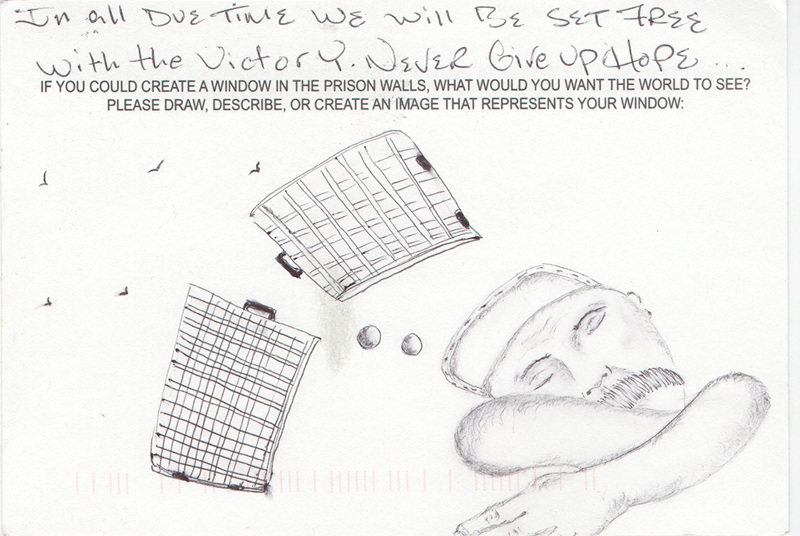 In all Due Time We will Be Set Free
with the Victory. Never Give Up Hope...
IF YOU COULD CREATE A WINDOW IN THE PRISON WALLS, WHAT WOULD YOU WANT THE WORLD TO SEE?
PLEASE DRAW, DESCRIBE, OR CREATE AN IMAGE THAT REPRESENTS YOUR WINDOW: